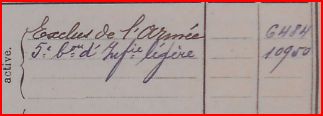 Exclus de l'Armée 6484
5e bon d'Infie légère 10950
active.